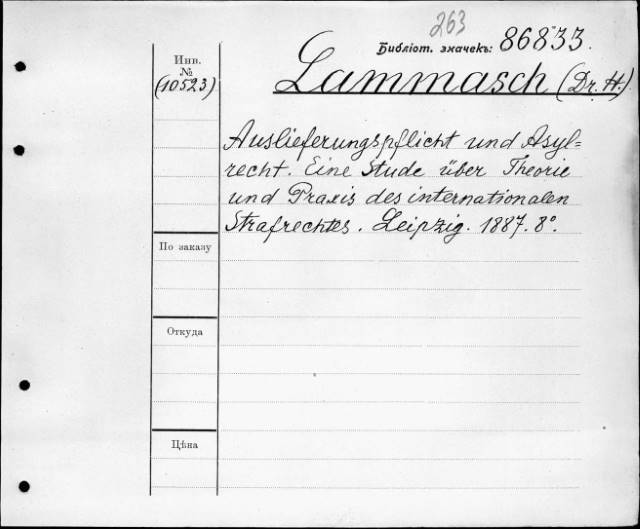 263
Библіот. значекъ: 86833.
Инв.
№
(10523)
Lammasch (Dr. H.)
Auslieferungspflicht und Asyl=
recht. Eine Stude über Theorie
und Praxis des internationalen
Strafrechtes. Leipzig. 1887. 8°.
По заказу
Откуда
Цѣна